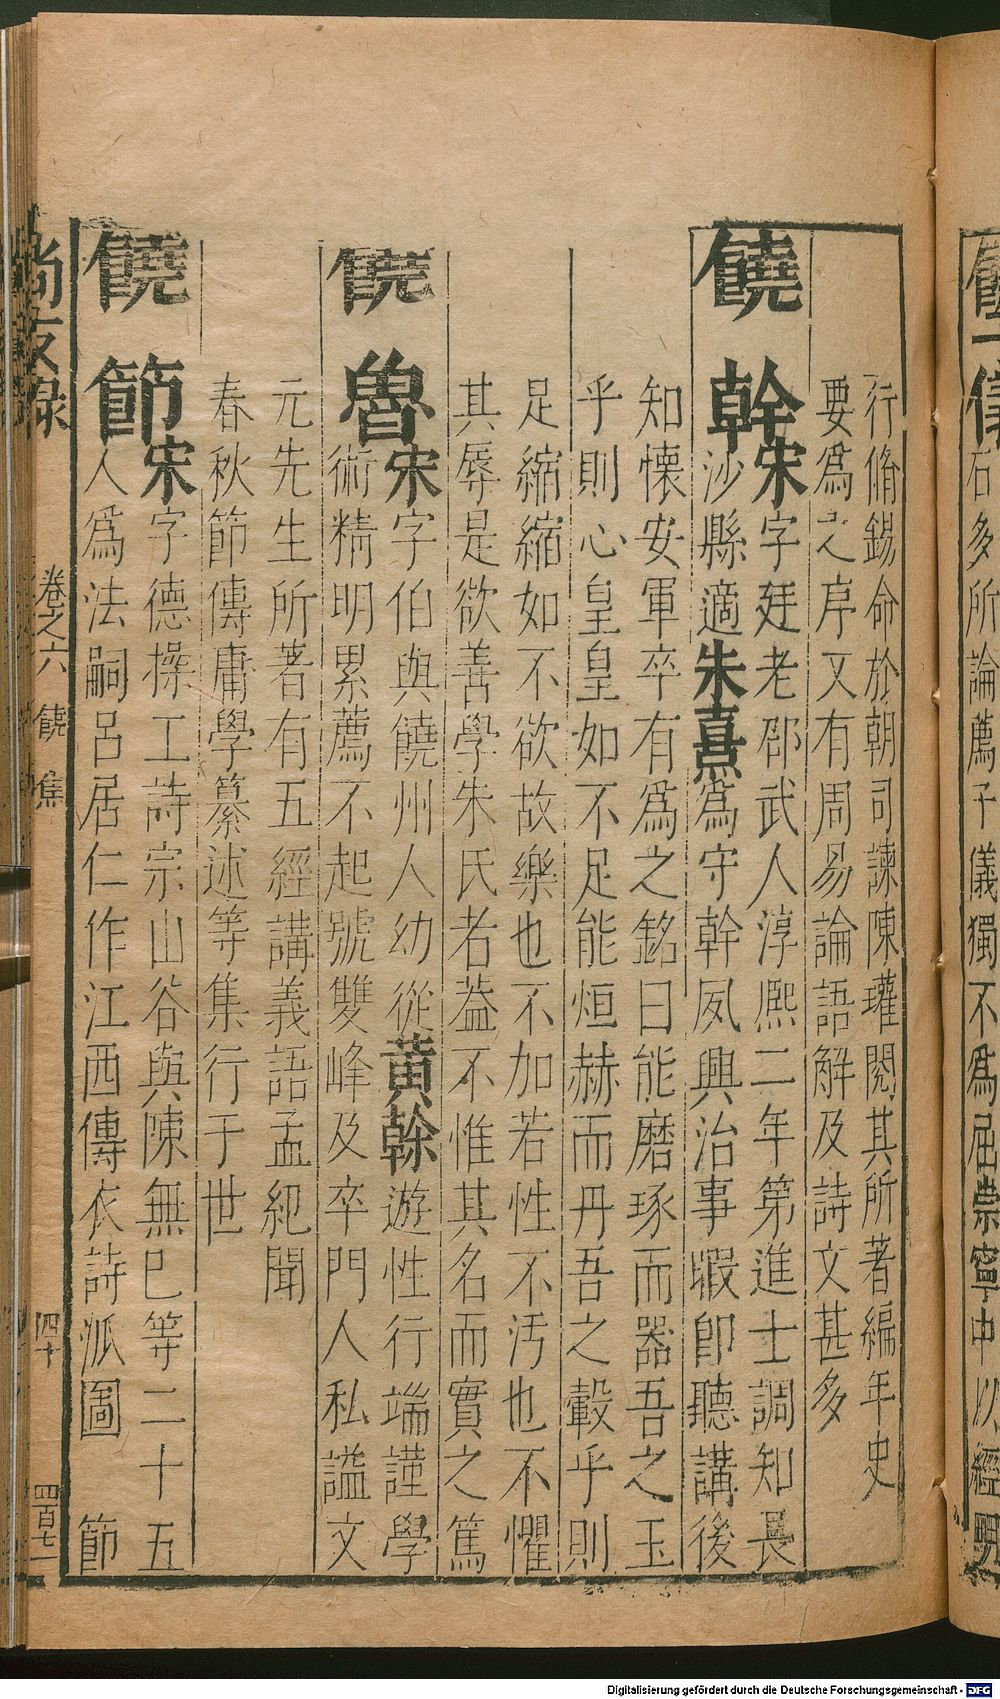 儀
右多所論薦子儀獨不爲屈崇寧中以經明
行脩錫命於朝司諫陳瓘閱其所著編年史
要爲之序又有周易論語解及詩文甚多
饒幹宋字廷老邵武人淳熙二年第進士調知長
沙縣適朱熹爲守幹夙興治事暇卽聽講後
知懷安軍卒有爲之銘曰能磨琢而器吾之玉
乎則心皇皇如不足能烜赫而丹吾之轂乎則
足縮縮如不欲故樂也不加若性不汚也不懼
其辱是欲善學朱氏者葢不惟其名而實之篤
饒魯宋字伯與饒州人幼從黃榦遊性行端謹學
術精明累薦不起號雙峰及卒門人私謚文
元先生所著有五經講義語孟紀聞
春秋節傳庸學纂述等集行于世
饒節宋字德操工詩宗山谷與陳無巳等二十五
人爲法嗣呂居仁作江西傳衣詩派圖 節
尚友錄 卷之六 饒 焦 四十 四百七一
Digitalisierung gefördert durch die Deutsche Forschungsgemeinschaft - DFG